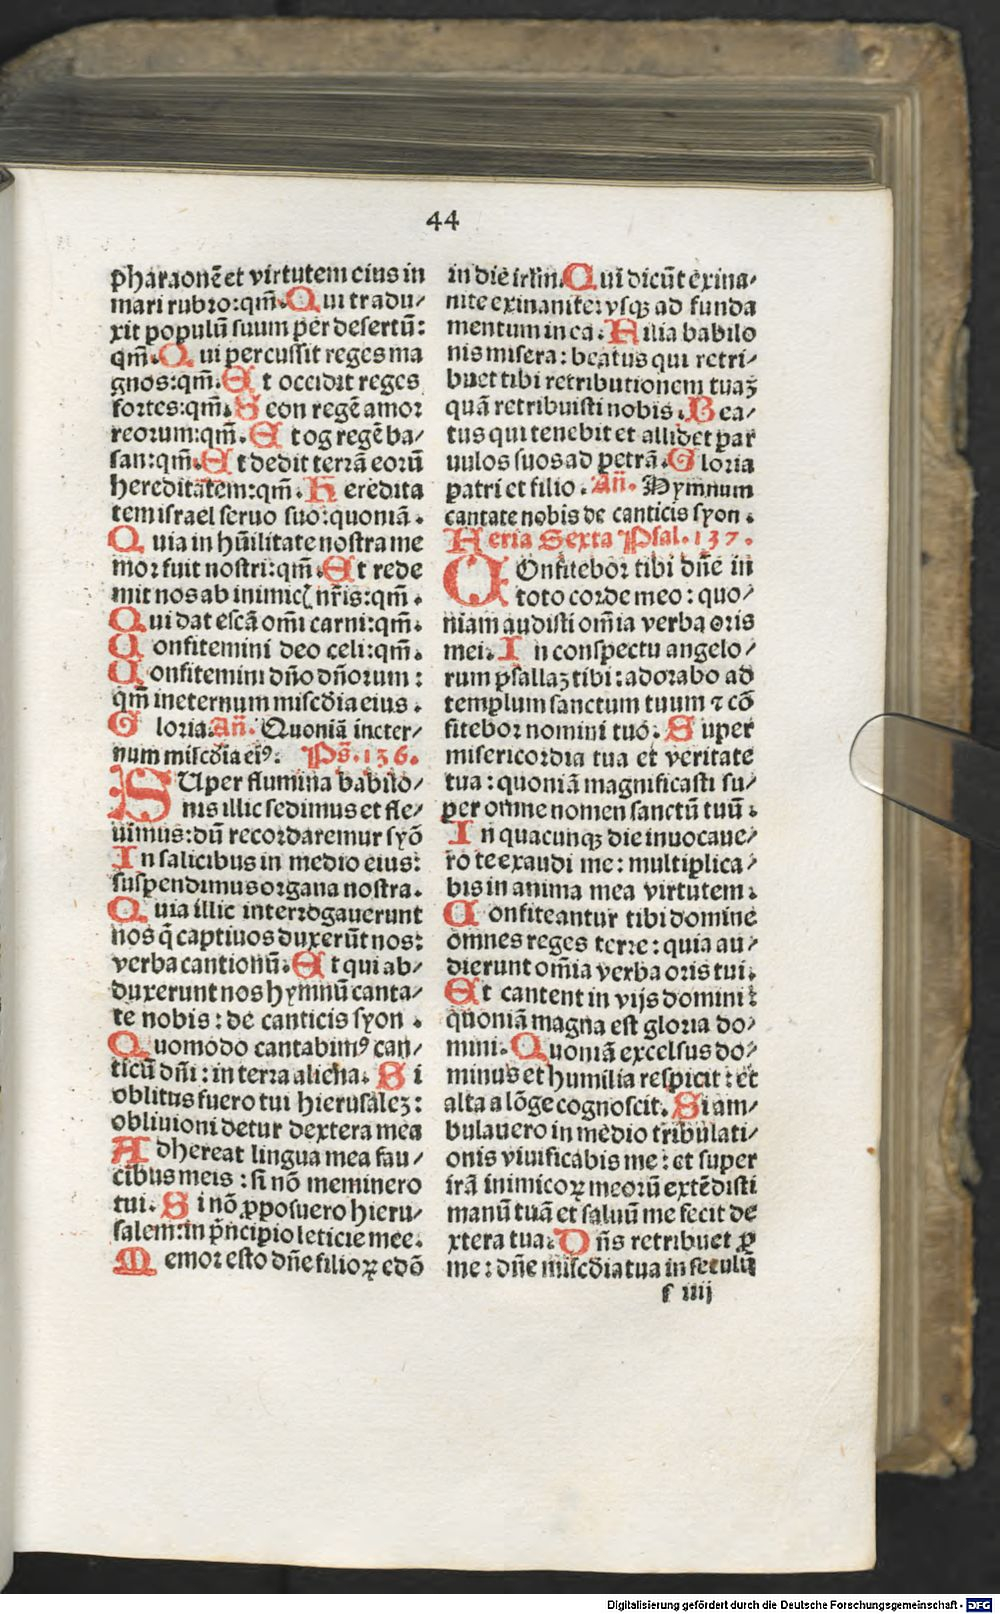 44
pharaonē et virtutem eius in
mari rubro:qm̄. Qui tradu/
xit populū suum per desertū:
qm̄. Qui percussit reges ma
gnos:qm̄. Et occidit reges
fortes:qm̄. Seon regē amor
reorum:qm̄. Et og regē ba/
san:qm̄. Et dedit terrā eorū
hereditatem:qm̄. Heredita
tem israel seruo suo:quoniā.
Quia in hūilitate nostra me
mor fuit nostri:qm̄. Et rede
mit nos ab inimicꝭ nr̄is:qm̄.
Qui dat escā om̄i carni:qm̄.
Confitemini deo celi:qm̄.
Confitemini dn̄o dn̄orum:
qm̄ in eternum misc̄dia eius.
Gloria. An̄. Quoniā in eter/
num misc̄dia eiꝰ. Ps̄. 136.
SUper flumina babilo/
nis illic sedimus et fle/
uimus:dū recordaremur syō
In salicibus in medio eius:
suspendimus organa nostra.
Quia illic interrogauerunt
nos q̄ captiuos duxerūt nos:
verba cantionū. Et qui ab/
duxerunt nos hymnū canta/
te nobis: de canticis syon.
Quomodo cantabimꝰ can/
ticū dn̄i: in terra aliena. Si
oblitus fuero tui hierusaleꝫ:
obliuioni detur dextera mea
Adhereat lingua mea fau/
cibus meis: si nō meminero
tui. Si nō ꝓposuero hieru/
salem:in p̄ncipio leticie mee.
Memor esto dn̄e filioꝝ edō
in die irl̄m. Qui dicūt exina/
nite exinanite: vsqꝫ ad funda
mentum in ea. Filia babilo
nis misera: beatus qui retri/
buet tibi retributionem tuaꝫ
quā retribuisti nobis. Bea/
tus qui tenebit et allidet par
uulos suos ad petrā. Gloria
patri et filio. An̄. Hymnum
cantate nobis de canticis syon.
Feria Sexta Psal. 137.
COnfitebor tibi dn̄e in
toto corde meo: quo/
niam audisti om̄ia verba oris
mei. In conspectu angelo/
rum psallaꝫ tibi: adorabo ad
templum sanctum tuum ⁊ cō
fitebor nomini tuo. Super
misericordia tua et veritate
tua: quoniā magnificasti su/
per omne nomen sanctū tuū.
In quacunqꝫ die inuocaue/
ro te exaudi me: multiplica/
bis in anima mea virtutem.
Confiteantur tibi domine
omnes reges terre: quia au/
dierunt om̄ia verba oris tui.
Et cantent in vijs domini:
quoniā magna est gloria do/
mini. Quoniā excelsus do/
minus et humilia respicit: et
alta a lōge cognoscit. Si am/
bulauero in medio tribulati/
onis viuificabis me: et super
irā inimicoꝝ meorū extēdisti
manū tuā et saluū me fecit de
xtera tua. Dn̄s retribuet ꝓ
me: dn̄e misc̄dia tua in seculū
f iiij
Digitalisierung gefördert durch die Deutsche Forschungsgemeinschaft - DFG